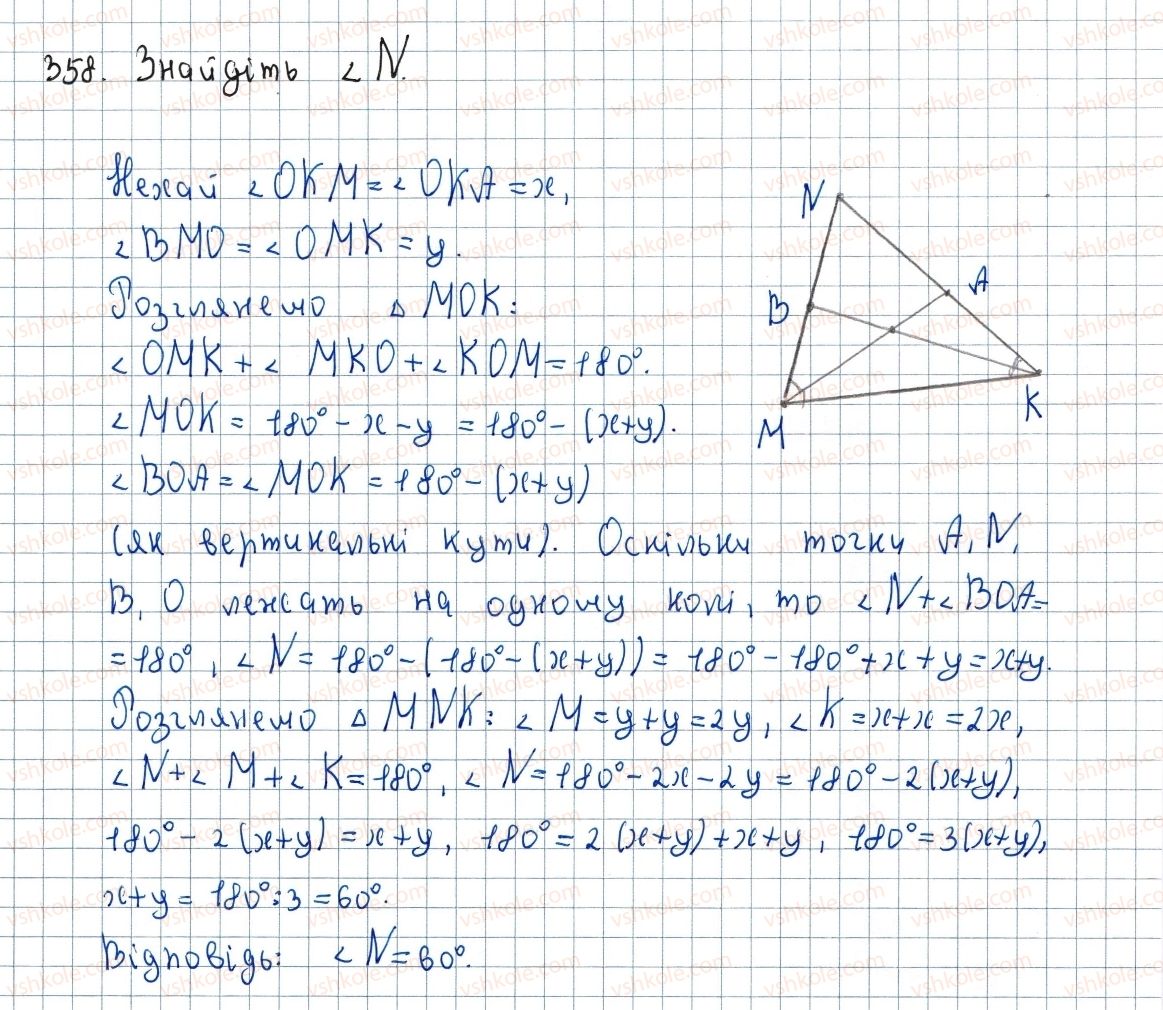 358. Знайдіть ∠N.
Нехай ∠OKM=∠OKA=x,
∠BMO=∠OMK=y.
Розглянемо △MOK:
∠OMK+∠MKO+∠KOM=180°.
∠MOK=180°-x-y=180°-(x+y).
∠BOA=∠MOK=180°-(x+y)
(як вертикальні кути). Оскільки точки A, N,
B, O лежать на одному колі, то ∠N+∠BOA=
=180°, ∠N=180°-(180°-(x+y))=180°-180°+x+y=x+y.
Розглянемо △MNK: ∠M=y+y=2y, ∠K=x+x=2x,
∠N+∠M+∠K=180°, ∠N=180°-2x-2y=180°-2(x+y),
180°-2(x+y)=x+y, 180°=2(x+y)+x+y, 180°=3(x+y),
x+y=180°:3=60°.
Відповідь: ∠N=60°.
N
A
B
K
M
vshkole.com